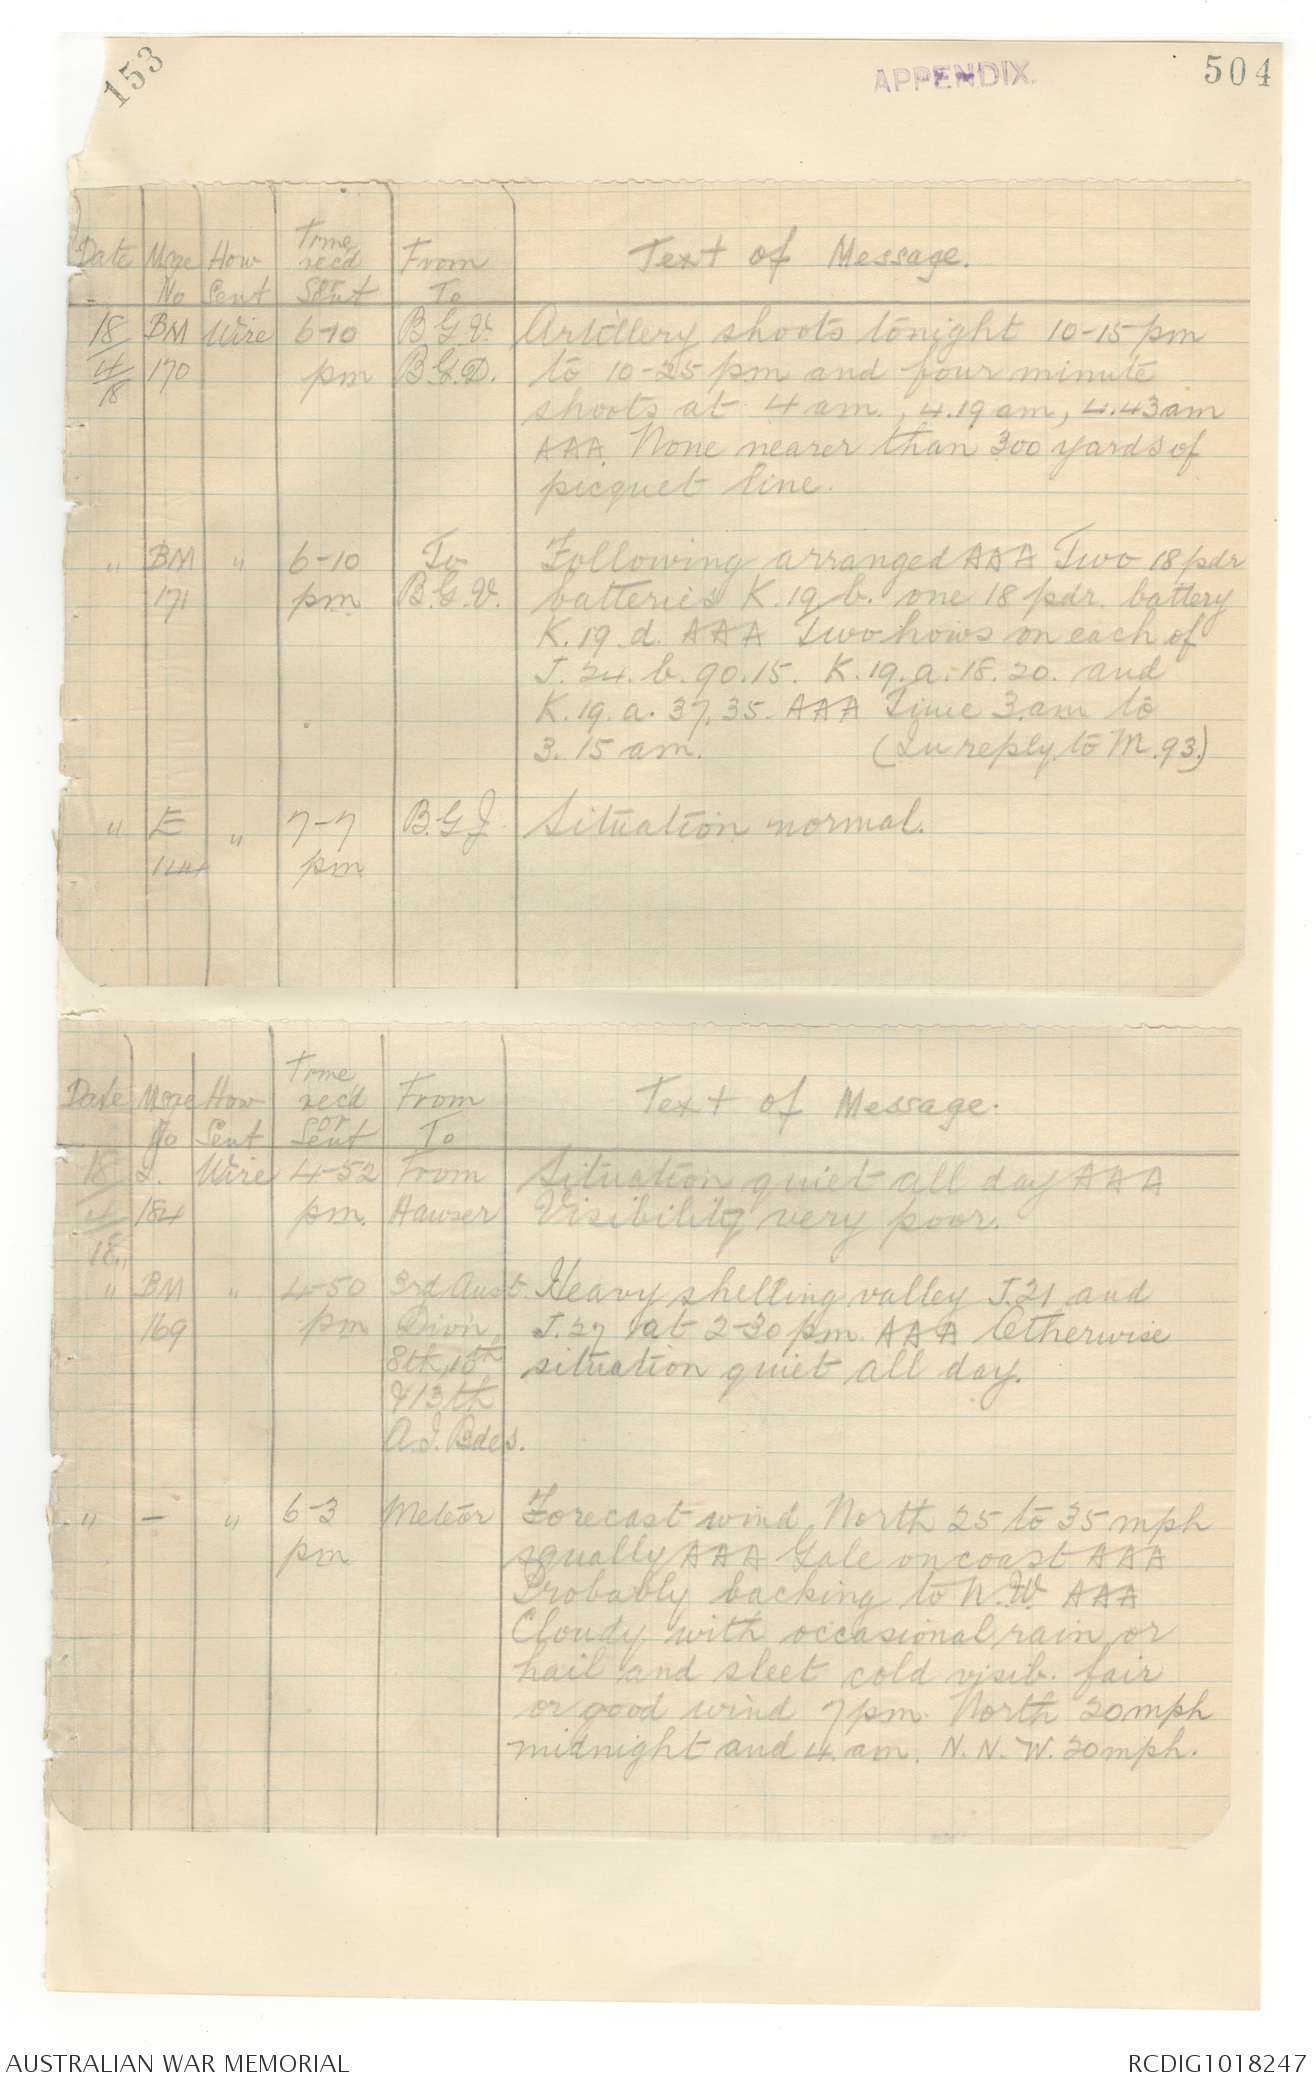 153
APPENDIX.
504
Date Msge No How Sent Time rec'd or Sent From To Text of Message.
18/4/18 BM 170 Wire 6-10 pm B.G.V. B.G.D. Artillery shoots tonight 10-15 pm
to 10-25 pm and four minute
shoots at 4 am., 4.19 am, 4.43 am
AAA. None nearer than 300 yards of
picquet line.
" BM 171 " 6-10 pm To B.G.V. Following arranged AAA Two 18 pdr
batteries K.19.b. one 18 pdr. battery
K.19.d. AAA Two hows on each of
J.24.b.90.15. K.19.a.18.20. and
K.19.a.37.35. AAA Time 3.am to
3.15 am. (In reply to M.93.)
" E 124 " 7-7 pm B.G.J. Situation normal.
Date Msge No How Sent Time rec'd or Sent From To Text of Message.
18/4/18. I. 184 Wire 4-52 pm. From Hawser Situation quiet all day AAA
Visibility very poor.
" BM 169 " 4-50 pm 3rd Aust. Divn, 8th, 15th & 13th A.I. Bdes. Heavy shelling valley J.21 and
J.27 at 2-30 pm AAA Otherwise
situation quiet all day.
" — " 6-3 pm Meteor Forecast wind North 25 to 35 mph
squally AAA Gale on coast AAA
Probably backing to N.W. AAA
Cloudy with occasional rain or
hail and sleet cold visib. fair
or good wind 7 pm. North 20 mph
midnight and 4. am. N.N.W. 20 mph.
AUSTRALIAN WAR MEMORIAL
RCDIG1018247